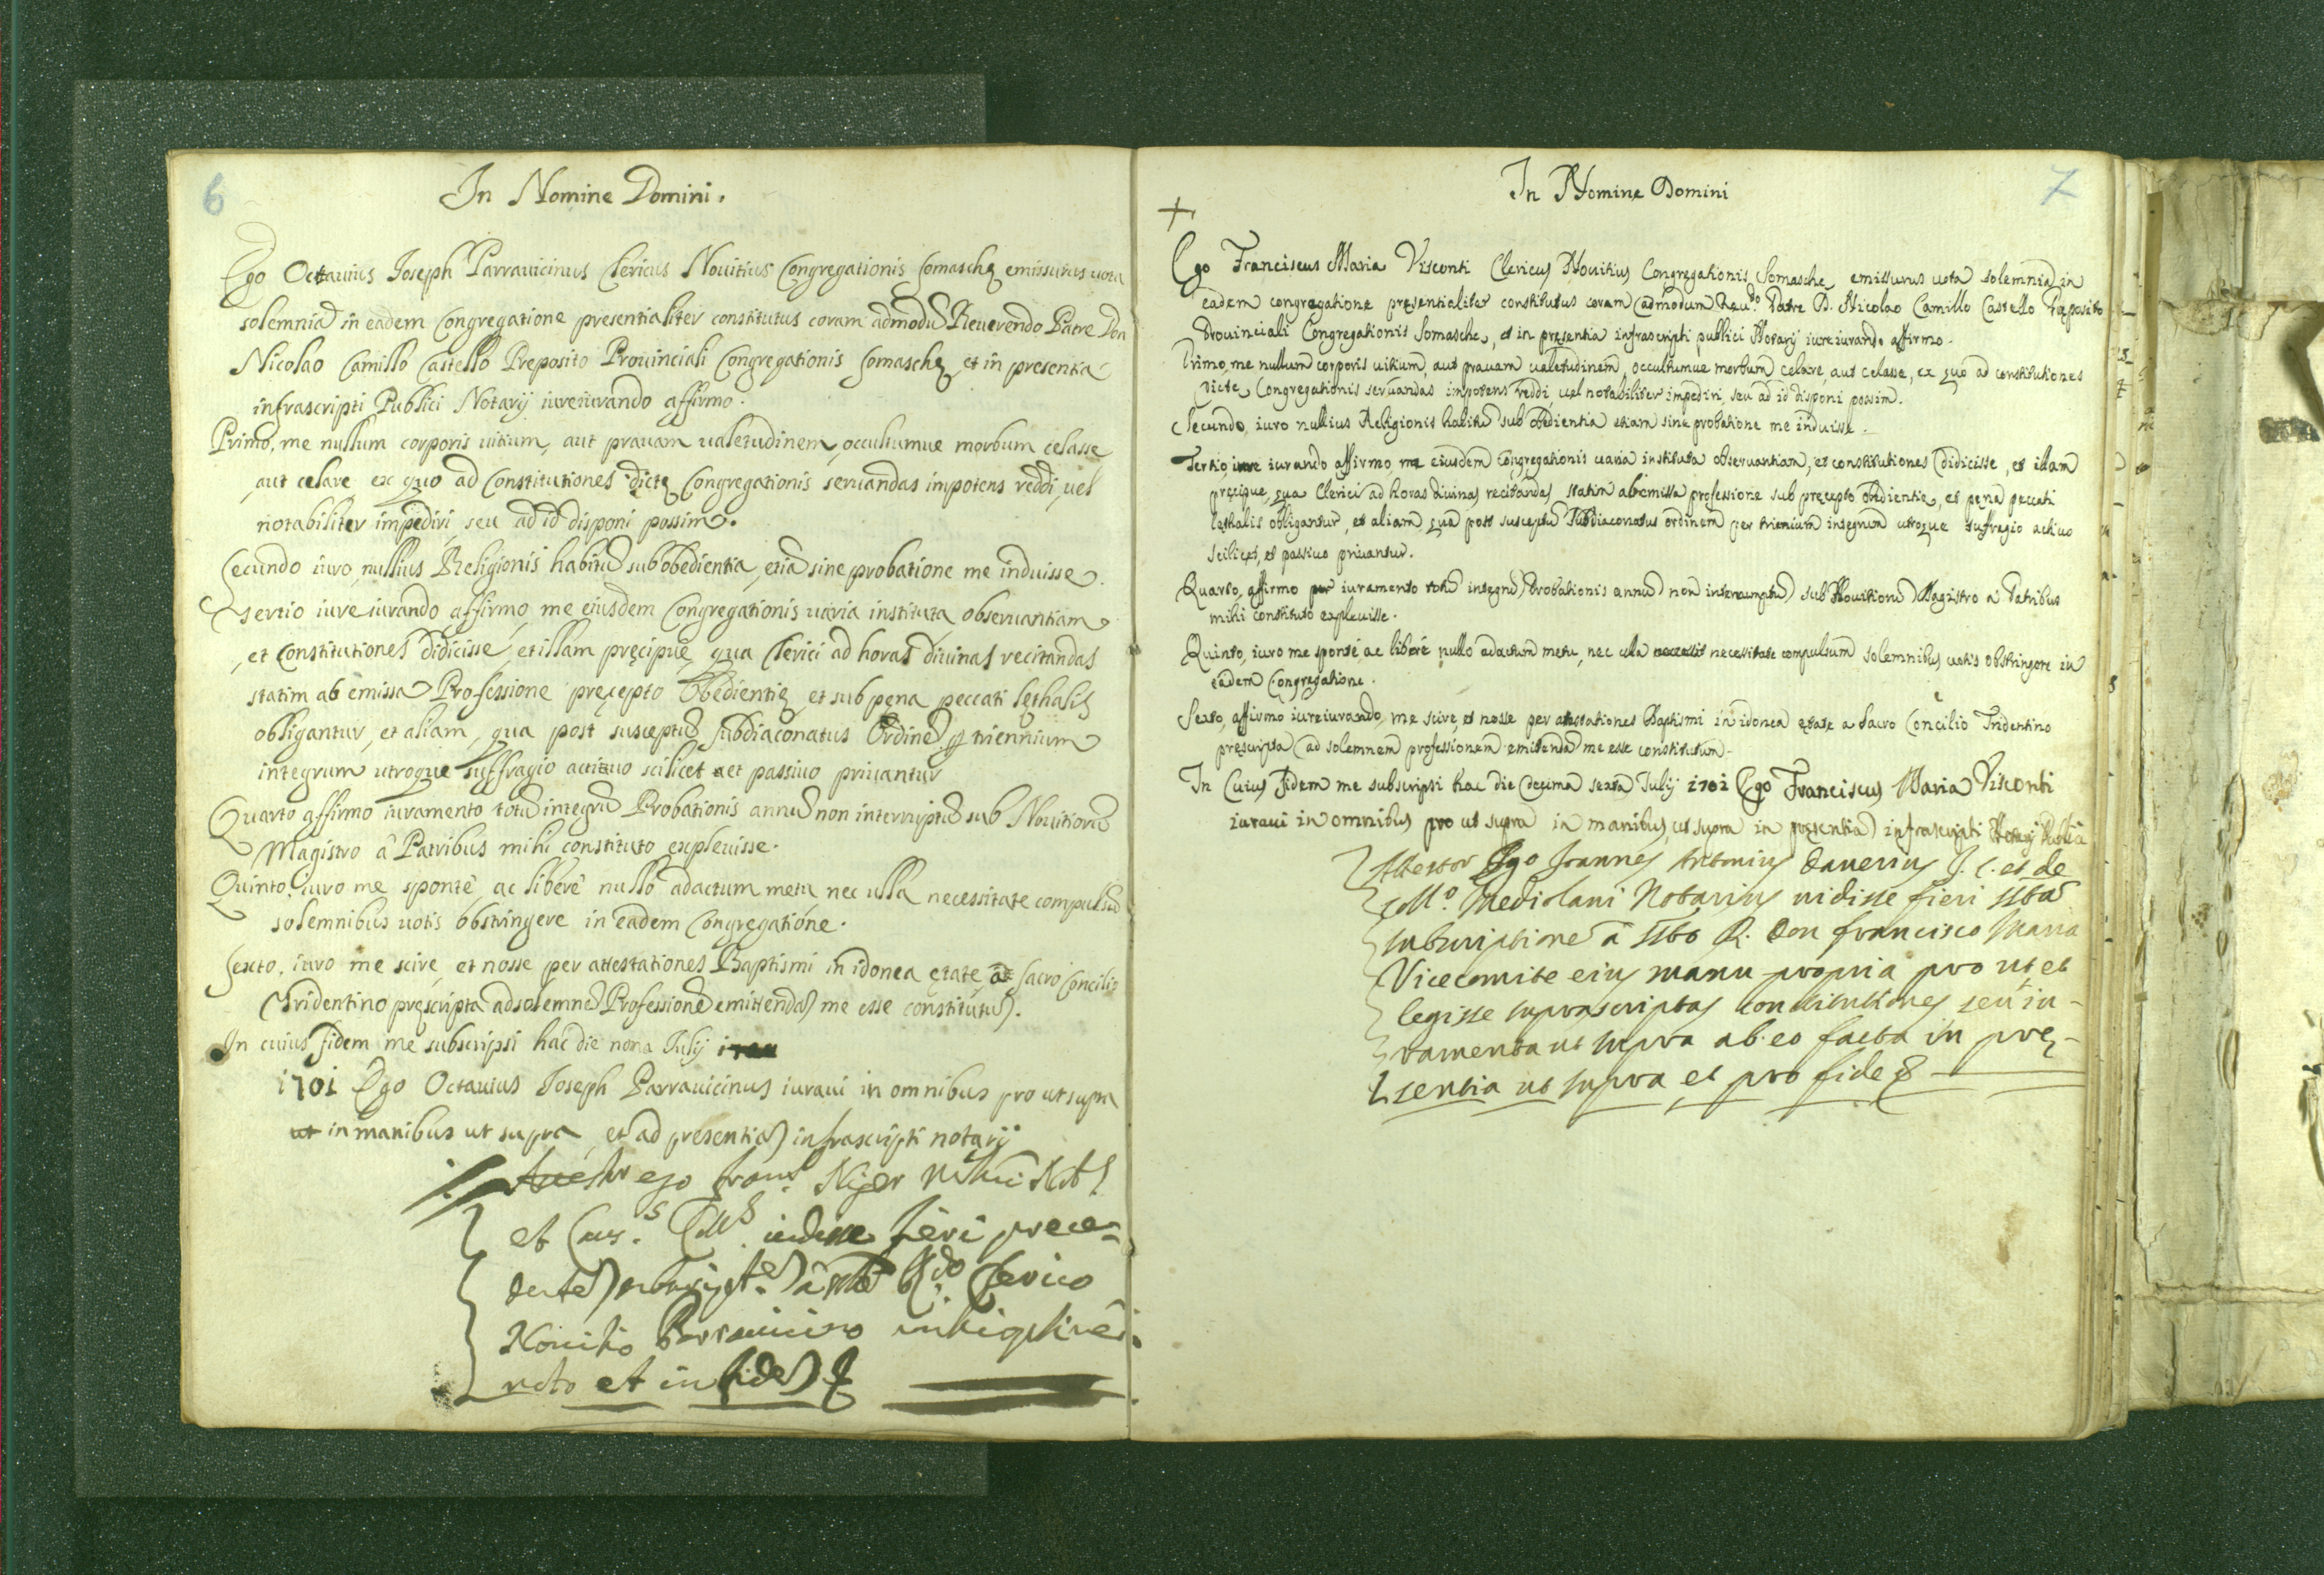 6
In Nomine Domini.
Ego Octauius Joseph Parrauicinus Clericus Nouitius Congregationis Somaschę emissurus uota
solemnia in eadem Congregatione presentialiter constitutus coram admodũ Reuerendo Patre Don
Nicolao Camillo Castello Preposito Prouinciali Congregationis Somaschę et in presentia
infrascripti Publici Notarij iureiurando affirmo.
Primo, me nullum corporis uitium, aut prauam ualetudinem, occultumue morbum celasse
aut celare ex quo ad Constitutiones dictę Congregationis seruandas impotens reddi, uel
notabiliter impediri, seu ad id disponi possim.
Secundo iuro, nullius Religionis habitũ sub obedientia, etiã sine probatione me induisse.
Tertio iure iurando affirmo, me eiusdem Congregationis uaria instituta obseruantiam
et Constitutiones didicisse, et illam pręcipuè qua Clerici ad horas diuinas recitandas
statim ab emissa Professione pręcepto Obedientię et sub pena peccati lethalis
obligantur, et aliam, qua post susceptũ subdiaconatus Ordinẽ ꝑ triennium
integrum utroque suffragio actiuo scilicet et passiuo priuantur
Quarto affirmo iuramento totũ integrũ Probationis annũ non interruptũ sub Nouitiorũ
Magistro à Patribus mihi constituto expleuisse.
Quinto. iuro me spontè ac liberè nullo adactum metu nec ulla necessitate compulsũ
solemnibus uotis obstringere in eadem Congregatione.
Sexto. iuro me scire, et nosse per attestationes Baptismi in idonea ętate, à Sacro Concilio
Tridentino pręscripta ad solemnẽ Professionẽ emittendã me esse constitutũ.
In cuius fidem me subscripsi hac die nona Julij
1701 Ego Octauius Joseph Parrauicinus iuraui in omnibus pro ut supra
ut in manibus ut supra et ad presentiã infrascripti notarij
ego Niger
et fieri prece-
dentẽ à Clerico
Nouitio Parrauicino
et in fidẽ
7
In Nomine Domini
+
Ego Franciscus Maria Visconti Clericus Nouitius Congregationis Somasche emissurus uota solemnia in
eadem congregatione pręsentialiter constitutus coram admodum Reu.do Patre D. Nicolao Camillo Castello Pręposito
Prouinciali Congregationis Somasche, et in pręsentia infrascripti publici Notarij iureiurando affirmo.
Primo, me nullum corporis uitium, aut prauam ualetudinem, occultumue morbum celare, aut celasse, ex quo ad constitutiones
dicte Congregationis seruandas impotens reddi, uel notabiliter impediri, seu ad id disponi possim.
Secundo, iuro nullius Religionis habitũ sub obedientia etiam sine probatione me induisse.
Tertio, iure iurando affirmo, me eiusdem congregationis uaria instituta obseruantiam, et constitutiones didicisse, et illam
pręcipue, qua Clerici ad horas diuinas recitandas statim ab emissa professione sub pręcepto obedientię, et pęna peccati
lęthalis obligantur, et aliam, qua post susceptũ subdiaconatus ordinem per trienium integrum utroque suffragio actiuo
scilicet, et passiuo priuantur.
Quarto, affirmo iuramento totũ integrũ Probationis annũ non interrumptũ sub Nouitiorũ Magistro a Patribus
mihi constituto expleuisse.
Quinto, iuro me sponte, ac liberè nullo adactum metu, nec ulla necessitate compulsum solemnibus uotis obstringere in
eadem Congregatione.
Sexto, affirmo iureiurando, me scire, et nosse per attestationes Baptismi in idonea ętate a Sacro Concilio Tridentino
pręscripta ad solemnem professionem emitendã me esse constitutum.
In Cuius Fidem me subscripsi hac die decima sexta Julij 1701 Ego Franciscus Maria Visconti
iuraui in omnibus pro ut supra in manibus, ut supra in pręsentia infrascripti Notarij
Attestor Ego Joannes Antonius Dauerius J. C. et de
Coll.o Mediolani Notarius uidisse fieri sstã
subscriptionẽ à ssto R. Don Francisco Maria
Vicecomite eius manu propria pro ut et
legisse suprascriptas constitutiones seu iu-
ramenta ut supra ab eo facta in prę-
sentia ut supra, et pro fide &